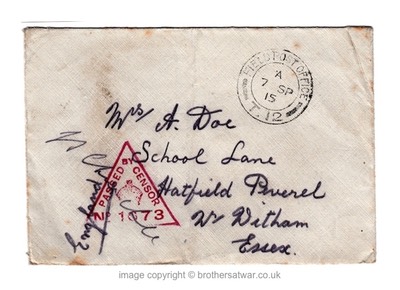 FIELD POST OFFICE
A
7 SP
15
T.12
Mrs A. Doe
School Lane
Hatfield Peverel
Nr Witham
Essex.
PASSED BY CENSOR
No 1673
England
image copyright © brothersatwar.co.uk